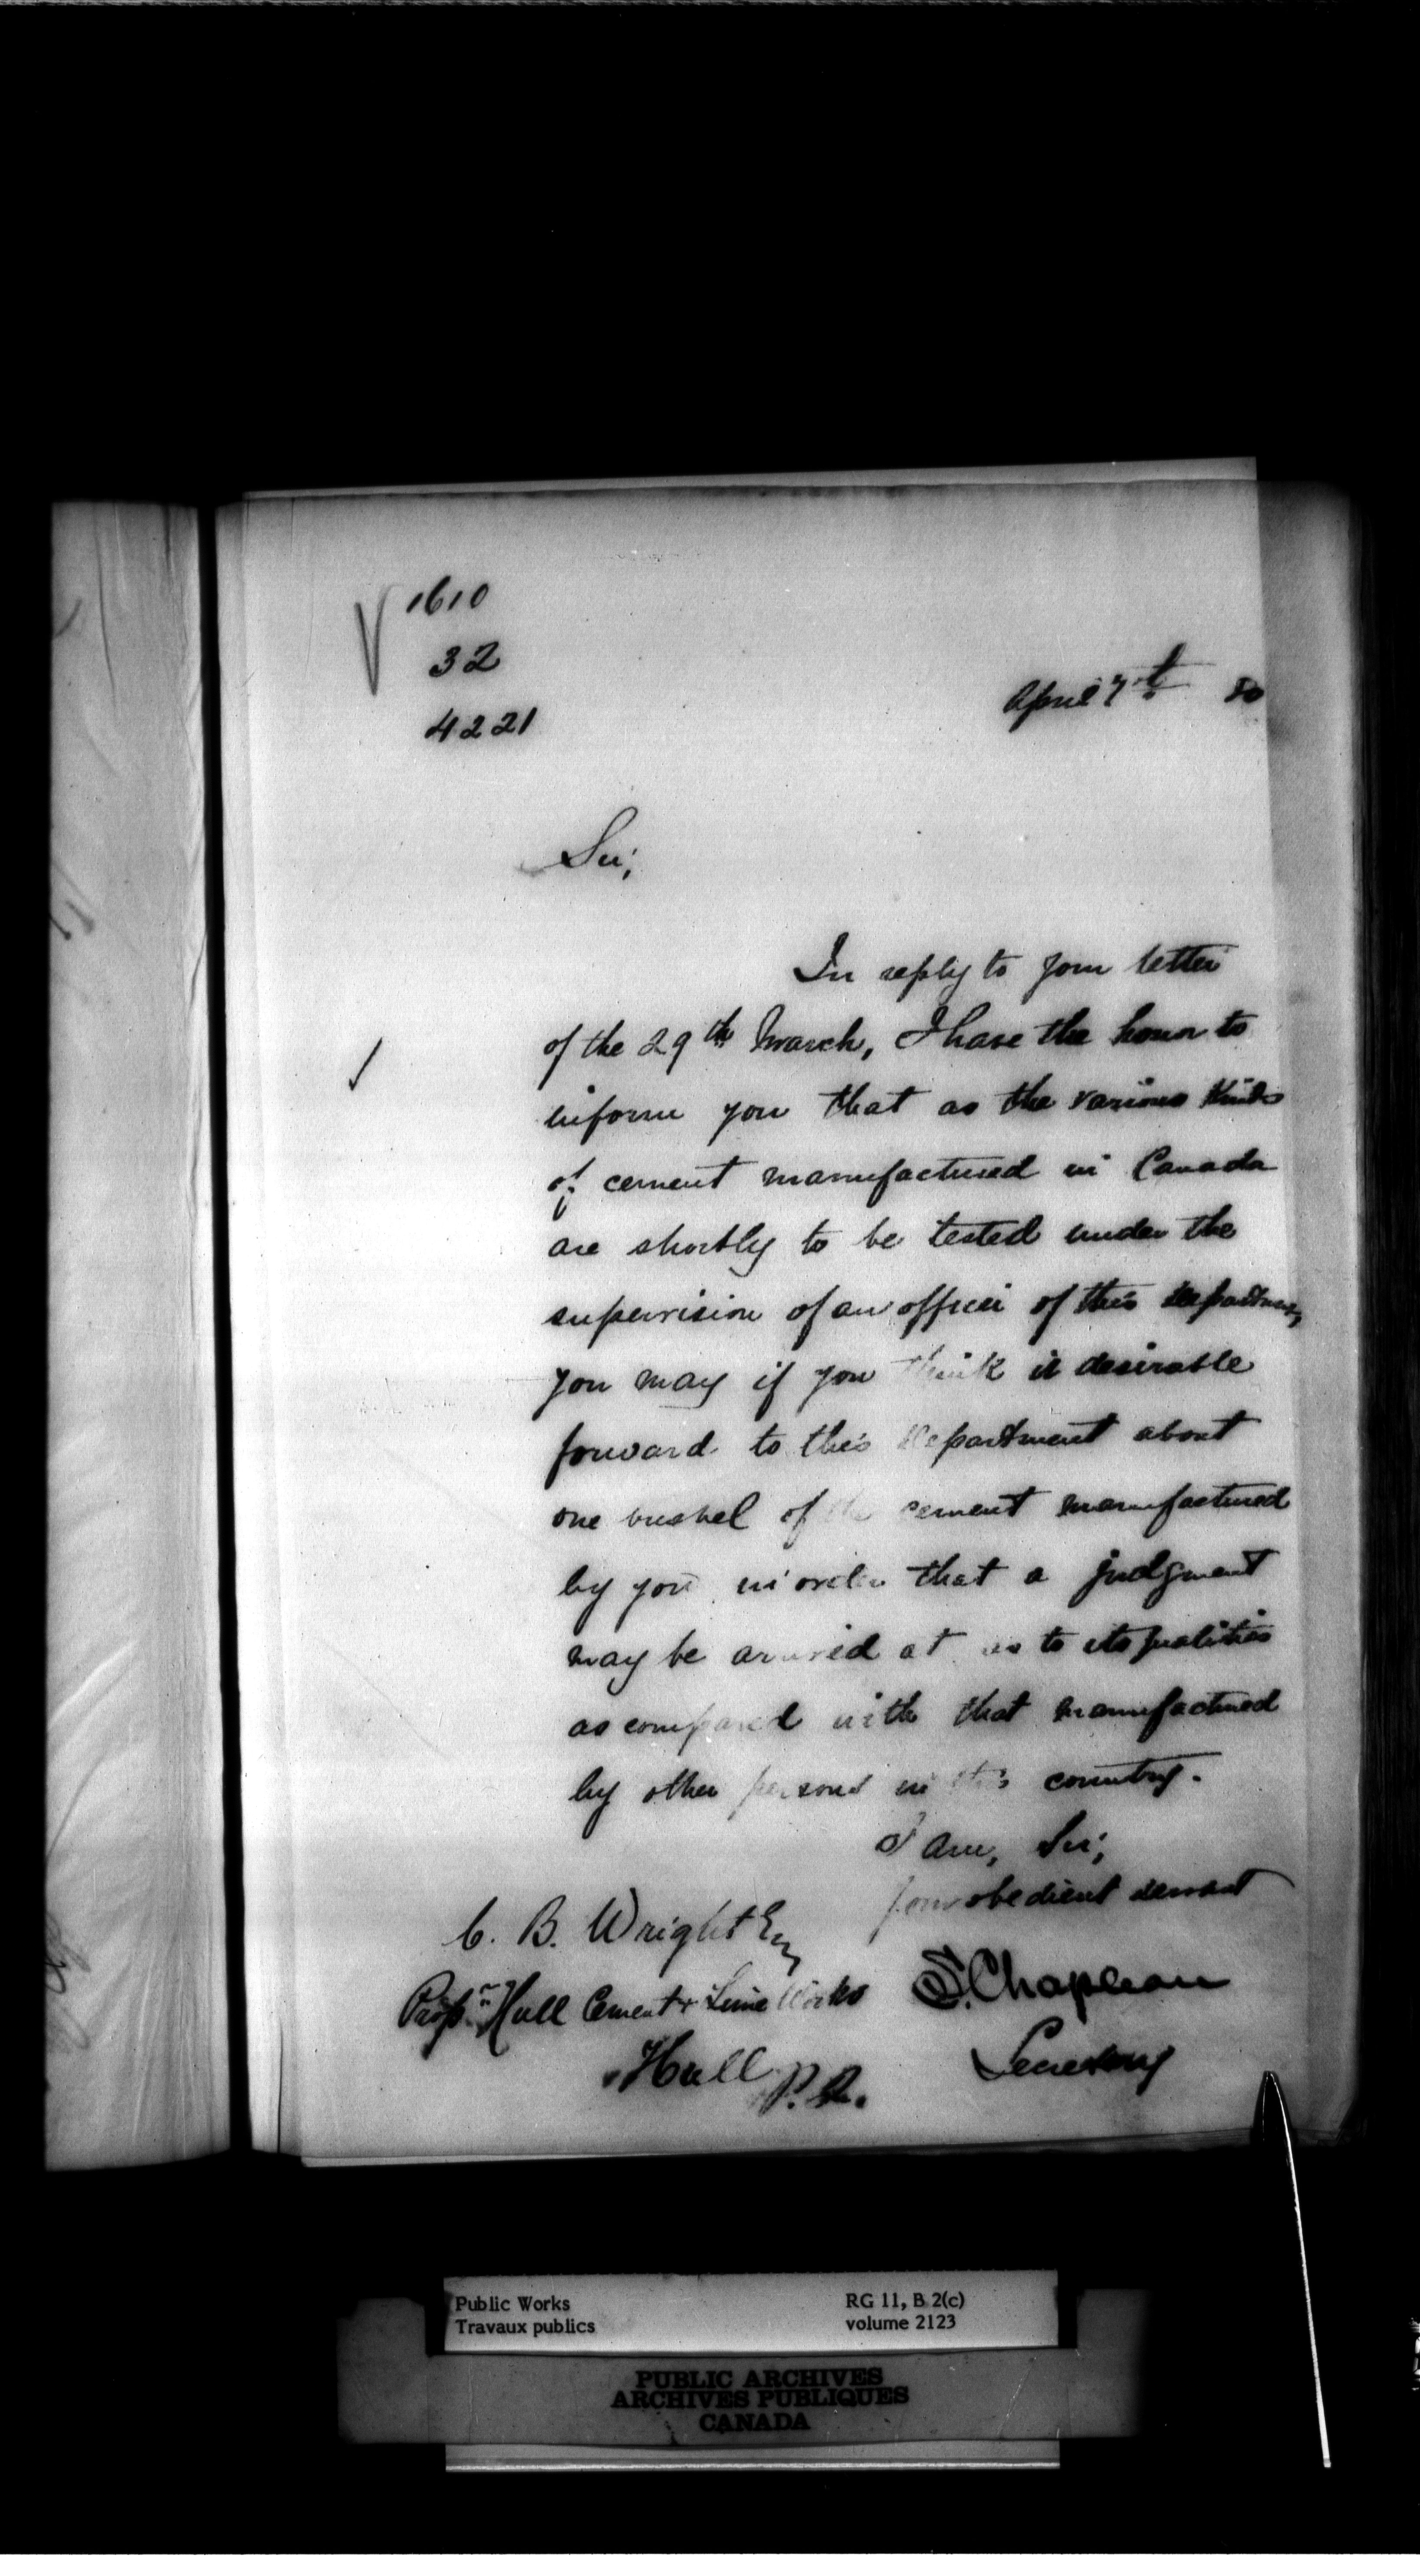 1610
32
4221
April 7th 80
Sir,
In reply to your letter
of the 29th March, I have the honor to
inform you that as the various kinds
of cement manufactured in Canada
are shortly to be tested under the
supervision of an officer of this Department,
you may if you think it desirable
forward to this Department about
one bushel of the cement manufactured
by you in order that a judgment
may be arrived at as to its qualities
as compared with that manufactured
by other persons in this country.
I am, Sir,
Your obedient servant
C. B. Wright Esq
S. Chapleau
Propr Hull Cement & Lime Works
Secretary
Hull P.Q.
Public Works
Travaux publics
RG 11, B 2(c)
volume 2123
PUBLIC ARCHIVES
ARCHIVES PUBLIQUES
CANADA